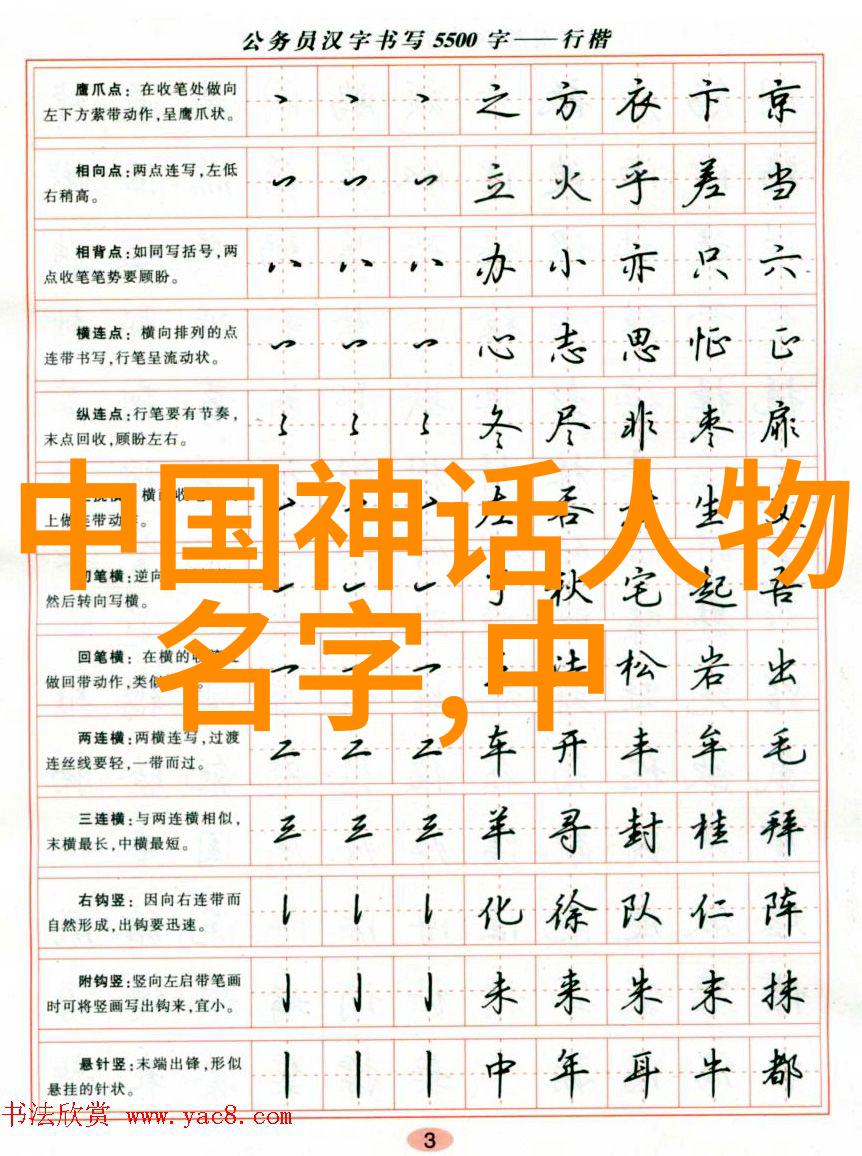 公务员汉字书写 5500 字——行楷
鹰爪点：在收笔处做向
左下方萦带动作,呈鹰爪状。
之 方 衣 卞 京
相向点:两点连写,左低
右稍高。
立 火 乎 差 当
相背点:如同写括号,两
点收笔笔势要顾盼。
办 小 亦 只 六
横连点：横向排列的点
连带书写,行笔呈流动状。
心 志 思 恒 正
纵连点:行笔要有节奏,
末点回收,顾盼左右。
冬 尽 非 枣 扉
横
上做连带动 。
左 否 生
中国神话人物
笔横:逆向
然后转向写横。
秋 宅 起 吾
名字,中
回笔横：在横的
做回带动作,类似
法 松 岩 出
两连横:两横连写,过渡
连丝线要轻,一带而过。
车 开 丰 牟 毛
三连横:与两连横相似,
末横最长,中横最短。
羊 寻 封 桂 拜
右钩竖：因向右连带而
自然形成,出钩要迅速。
化 徐 队 仁 阵
附钩竖:竖向左启带笔画
时可将竖画写出钩来,宜小。
未 来 朱 末 抹
悬针竖:末端出锋,形似
悬挂的针状。
中 年 耳 牛 都
书法欣赏 www.yac8.com
3